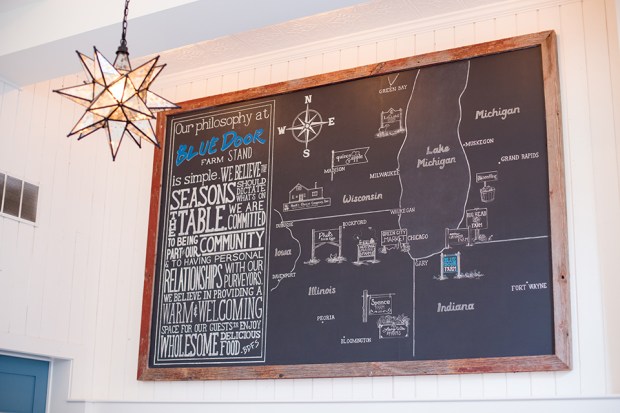 Our philosophy at
BLUE DOOR
FARM STAND
is simple. WE BELIEVE THE
SEASONS SHOULD
DICTATE
WHAT'S ON
THE TABLE. WE ARE
COMMITTED
TO BEING
PART OF OUR COMMUNITY
TO HAVING PERSONAL
RELATIONSHIPS WITH OUR
PURVEYORS.
WE BELIEVE IN PROVIDING A
WARM & WELCOMING
SPACE FOR OUR GUESTS TO ENJOY
WHOLESOME DELICIOUS
FOOD. BDFS
N
W E
S
GREEN BAY
Michigan
Lake
Michigan
MUSKEGON
GRAND RAPIDS
MADISON
MILWAUKEE
Wisconsin
WAUKEGAN
ROCKFORD
GREEN CITY
MARKET
CHICAGO
Iowa
DAVENPORT
GARY
Illinois
FORT WAYNE
Indiana
PEORIA
BLOOMINGTON